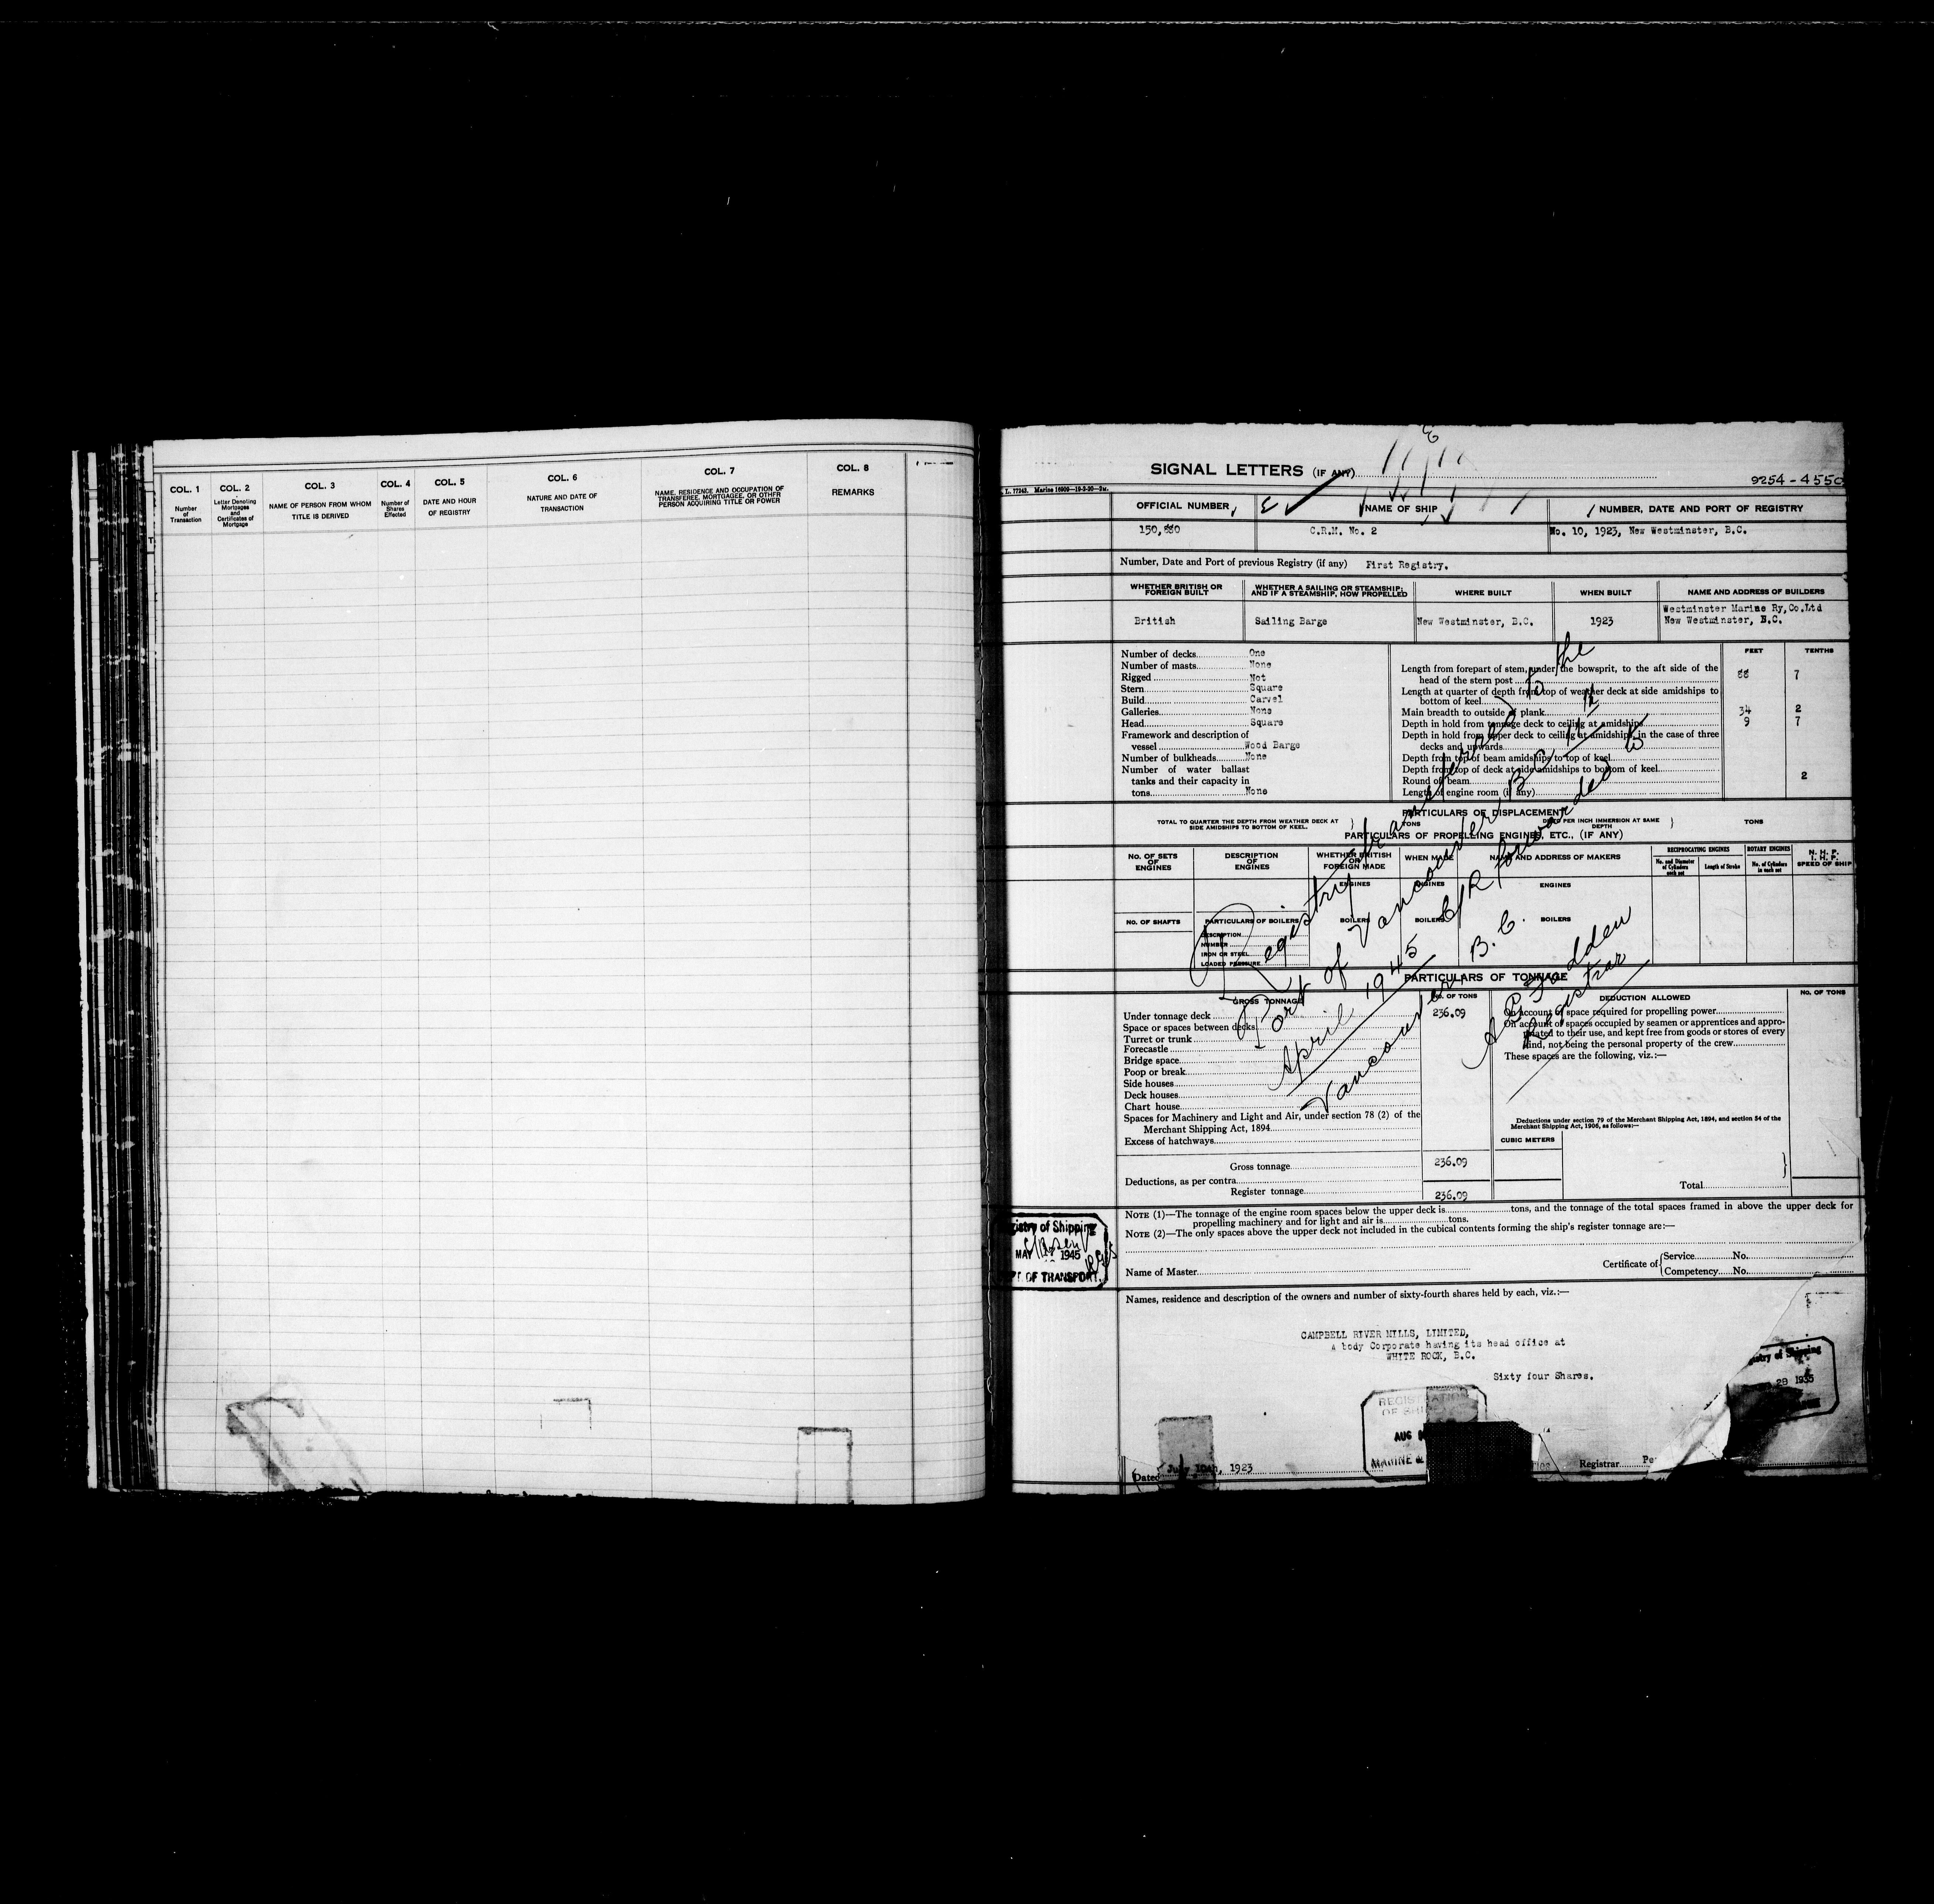 COL. 1
Number
of
Transaction
COL. 2
Letter Denoting
Mortgages
and
Certificates of
Mortgage
COL. 3
NAME OF PERSON FROM WHOM
TITLE IS DERIVED
COL. 4
Number of
Shares
Effected
COL. 5
DATE AND HOUR
OF REGISTRY
COL. 6
NATURE AND DATE OF
TRANSACTION
COL. 7
NAME, RESIDENCE AND OCCUPATION OF
TRANSFEREE, MORTGAGEE, OR OTHER
PERSON ACQUIRING TITLE OR POWER
COL. 8
REMARKS
SIGNAL LETTERS (IF ANY)
9254-4550
OFFICIAL NUMBER
NAME OF SHIP
NUMBER, DATE AND PORT OF REGISTRY
C.R.M. No. 2
No. 10, 1923, New Westminster, B.C.
Number, Date and Port of previous Registry (if any) First Registry.
WHETHER BRITISH OR
FOREIGN BUILT
WHETHER A SAILING OR STEAMSHIP;
AND IF A STEAMSHIP, HOW PROPELLED
WHERE BUILT
WHEN BUILT
NAME AND ADDRESS OF BUILDERS
British
Sailing Barge
New Westminster, B.C.
1923
Westminster Marine Ry,Co.Ltd
New Westminster, B.C.
Number of decks One
Number of masts None
Rigged Not
Stern Square
Build Carvel
Galleries None
Head Square
Framework and description of
vessel Wood Barge
Number of bulkheads None
Number of water ballast
tanks and their capacity in
tons None
FEET TENTHS
Length from forepart of stem, under the bowsprit, to the aft side of the
head of the stern post 88 7
Length at quarter of depth from top of weather deck at side amidships to
bottom of keel
Main breadth to outside of plank 34 2
Depth in hold from tonnage deck to ceiling at amidships 9 7
Depth in hold from upper deck to ceiling at amidships, in the case of three
decks and upwards
Depth from top of beam amidships to top of keel
Depth from top of deck at side amidships to bottom of keel
Round of beam 2
Length of engine room (if any)
PARTICULARS OF DISPLACEMENT
TOTAL TO QUARTER THE DEPTH FROM WEATHER DECK AT
SIDE AMIDSHIPS TO BOTTOM OF KEEL.
TONS
DITTO PER INCH IMMERSION AT SAME
DEPTH
TONS
PARTICULARS OF PROPELLING ENGINES, ETC., (IF ANY)
NO. OF SETS
OF
ENGINES
DESCRIPTION
OF
ENGINES
WHETHER BRITISH
OR
FOREIGN MADE
WHEN MADE
NAME AND ADDRESS OF MAKERS
RECIPROCATING ENGINES
No. and Diameter
of Cylinders
each set
Length of Stroke
ROTARY ENGINES
No. of Cylinders
in each set
N. H. P.
I. H. P.
SPEED OF SHIP
ENGINES
ENGINES
ENGINES
NO. OF SHAFTS
PARTICULARS OF BOILERS
BOILERS
BOILERS
BOILERS
DESCRIPTION
NUMBER
IRON OR STEEL
LOADED PRESSURE
Registry transferred to the
Port of Vancouver, B C 11th
April 1945 C/R forwarded to
Vancouver, B.C.
Registrar
PARTICULARS OF TONNAGE
GROSS TONNAGE
NO. OF TONS
DEDUCTION ALLOWED
NO. OF TONS
Under tonnage deck 236.09
Space or spaces between decks
Turret or trunk
Forecastle
Bridge space
Poop or break
Side houses
Deck houses
Chart house
Spaces for Machinery and Light and Air, under section 78 (2) of the
Merchant Shipping Act, 1894
Excess of hatchways
Gross tonnage 236.09
Deductions, as per contra
Register tonnage 236.09
On account of space required for propelling power
On account of spaces occupied by seamen or apprentices and appro-
priated to their use, and kept free from goods or stores of every
kind, not being the personal property of the crew
These spaces are the following, viz.:—
Deductions under section 79 of the Merchant Shipping Act, 1894, and section 54 of the
Merchant Shipping Act, 1906, as follows:—
CUBIC METERS
Total
NOTE (1)—The tonnage of the engine room spaces below the upper deck is tons, and the tonnage of the total spaces framed in above the upper deck for
propelling machinery and for light and air is tons.
NOTE (2)—The only spaces above the upper deck not included in the cubical contents forming the ship's register tonnage are:—
MAY 1945
OF TRANSPORT.
Name of Master
Certificate of
Service No.
Competency No.
Names, residence and description of the owners and number of sixty-fourth shares held by each, viz.:—
CAMPBELL RIVER MILLS, LIMITED,
A body Corporate having its head office at
WHITE ROCK, B.C.
Sixty four Shares.
of Shipping
1935
AUG
MARINE &
Dated July 10th, 1923
Registrar